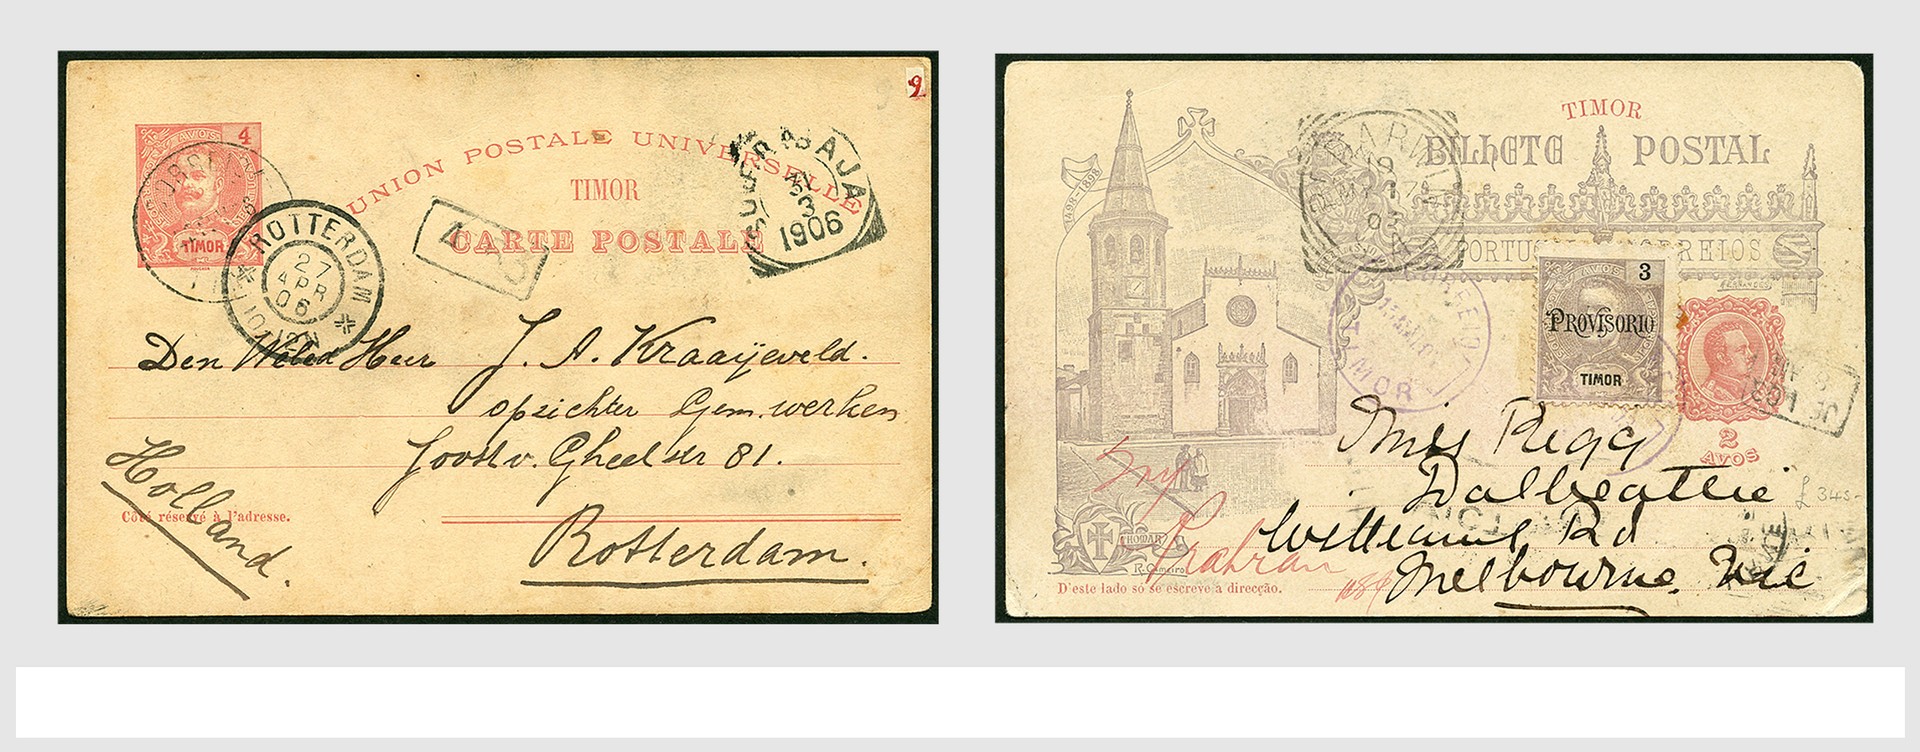 9
AVOS 4
TIMOR
UNION POSTALE UNIVERSELLE
TIMOR
CARTE POSTALE
SOERABAJA
3
1906
ROTTERDAM
27
APR
06
Den Weled Heer J. A. Kraaijeveld.
opzichter Gem. werken
Joost v. Gheelstr 81.
Holland.
Côté réservé à l'adresse.
Rotterdam.
TIMOR
BILHETE POSTAL
1498-1898
PORTUGAL CORREIOS
AVOS 3
PROVISORIO
TIMOR
TIMOR
2
AVOS
Miss Rigg
Dalbeattie
£ 34s-
Williams Rd
Melbourne. Vic
Try
Prahran
THOMAR
R. Gameiro
D'este lado só se escreve a direcção.